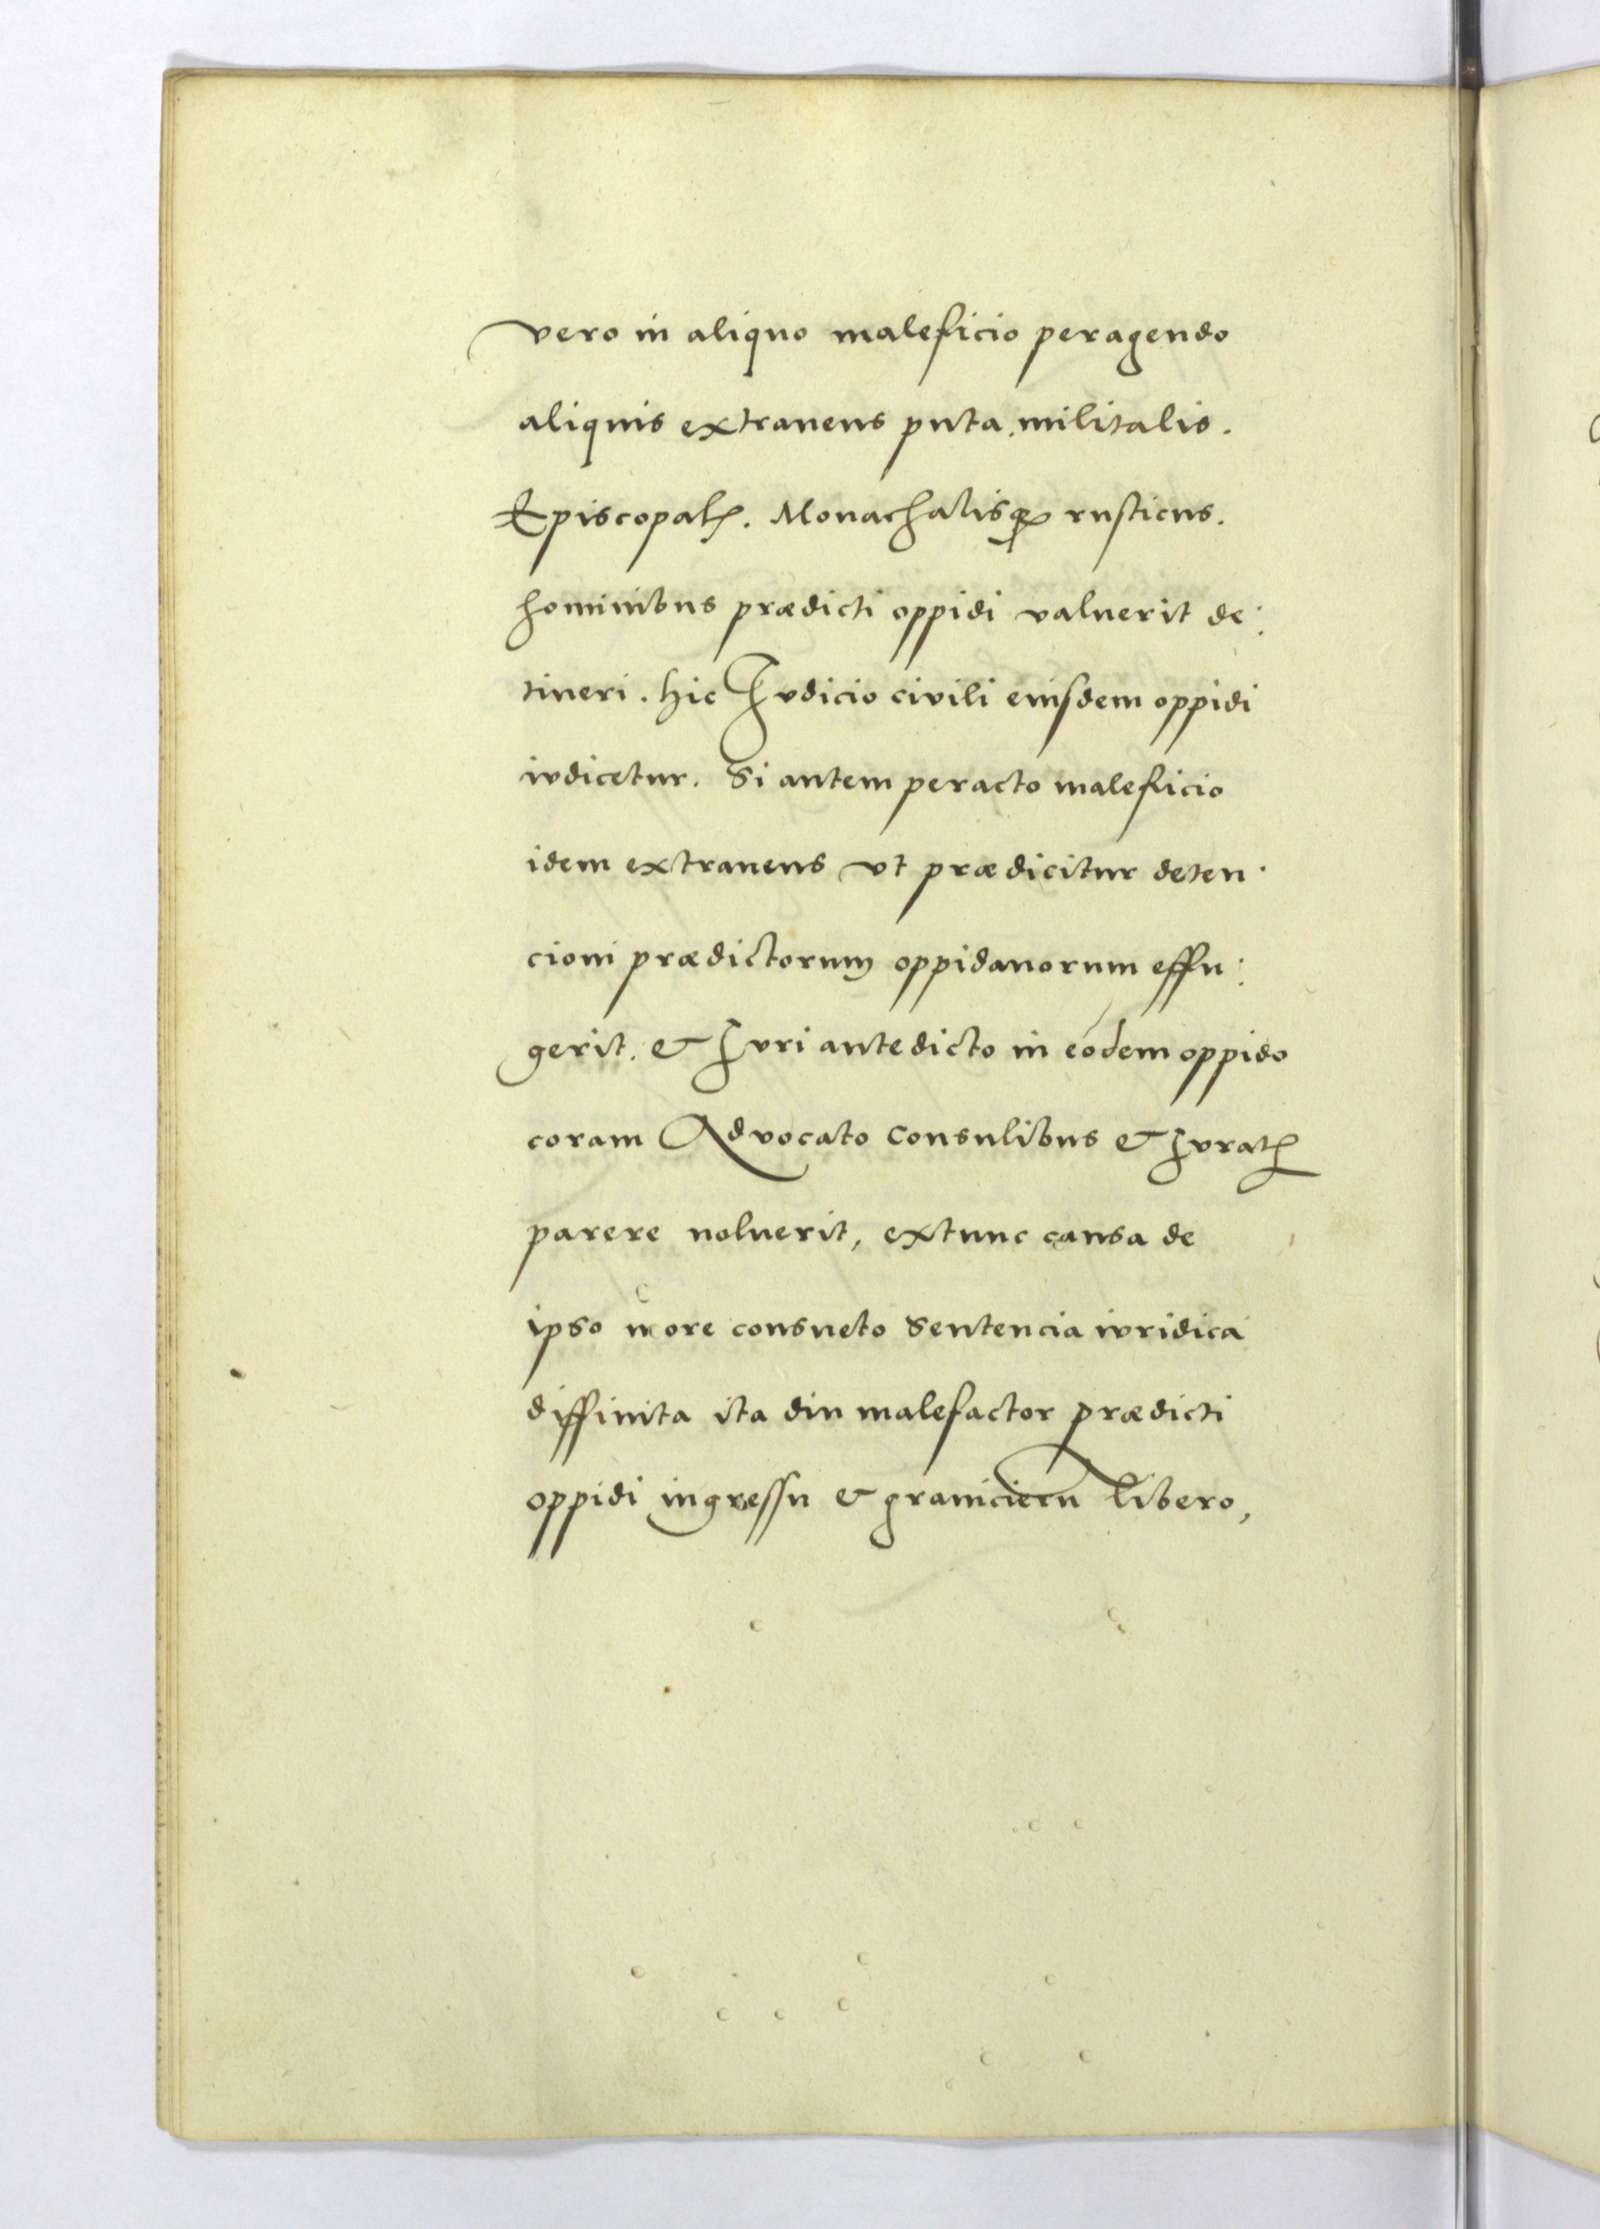 vero in aliquo maleficio peragendo
aliquis extraneus puta militalis.
Episcopalis. Monachalisque rusticus.
hominibus prædicti oppidi valuerit de:
tineri. hic Iudicio civili eiusdem oppidi
iudicetur. Si autem peracto maleficio
idem extraneus ut prædicitur deten:
cioni prædictorum oppidanorum effu:
gerit. & Iuri antedicto in eodem oppido
coram Advocato Consulibus & Iuratis
parere noluerit, extunc causa de
ipso more consueto Sentencia iuridica
diffinita ita diu malefactor prædicti
oppidi ingressu & libero,